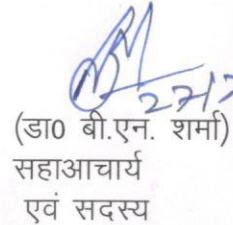 (डा0 बी.एन. शर्मा)
सहाआचार्य
एवं सदस्य